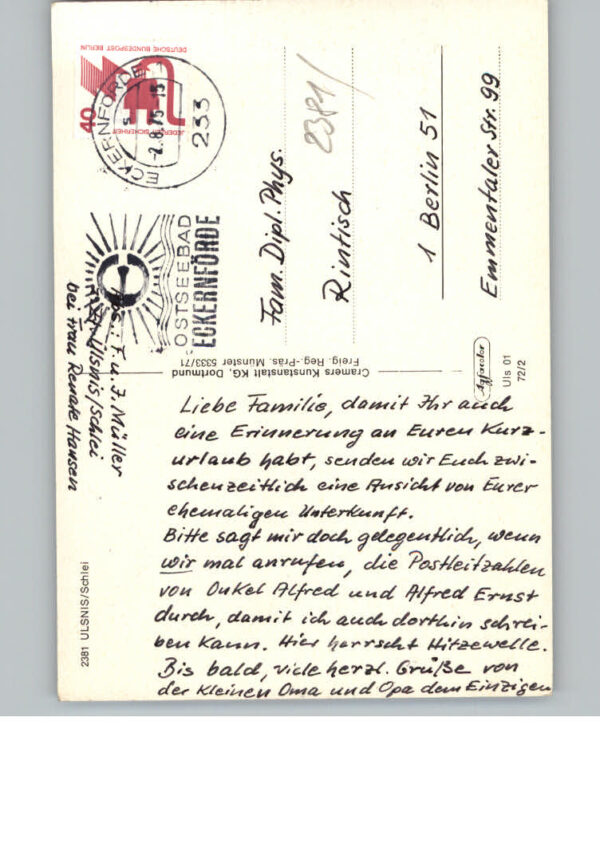 DEUTSCHE BUNDESPOST BERLIN
40
JEDERZEIT SICHERHEIT
ECKERNFÖRDE 1
-2.8.75-13
233
OSTSEEBAD
ECKERNFÖRDE
2381/
Fam. Dipl. Phys.
Rintisch
1 Berlin 51
Emmentaler Str. 99
Abs.: F. u. J. Müller
Ulsnis/Schlei
bei Frau Renate Hansen
Cramers Kunstanstalt KG, Dortmund
Freig. Reg.-Präs. Münster 5333/71
Agfacolor
Uls 01
72/2
2381 ULSNIS/Schlei
Liebe Familie, damit Ihr auch
eine Erinnerung an Euren Kurz-
urlaub habt, senden wir Euch zwi-
schenzeitlich eine Ansicht von Eurer
ehemaligen Unterkunft.
Bitte sagt mir doch gelegentlich, wenn
wir mal anrufen, die Postleitzahlen
von Onkel Alfred und Alfred Ernst
durch, damit ich auch dorthin schrei-
ben kann. Hier herrscht Hitzewelle.
Bis bald, viele herzl. Grüße von
der kleinen Oma und Opa dem Einzigen